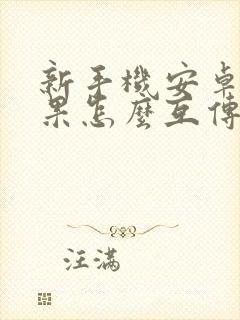 新手機安卓
果怎麼互傳
汪滿